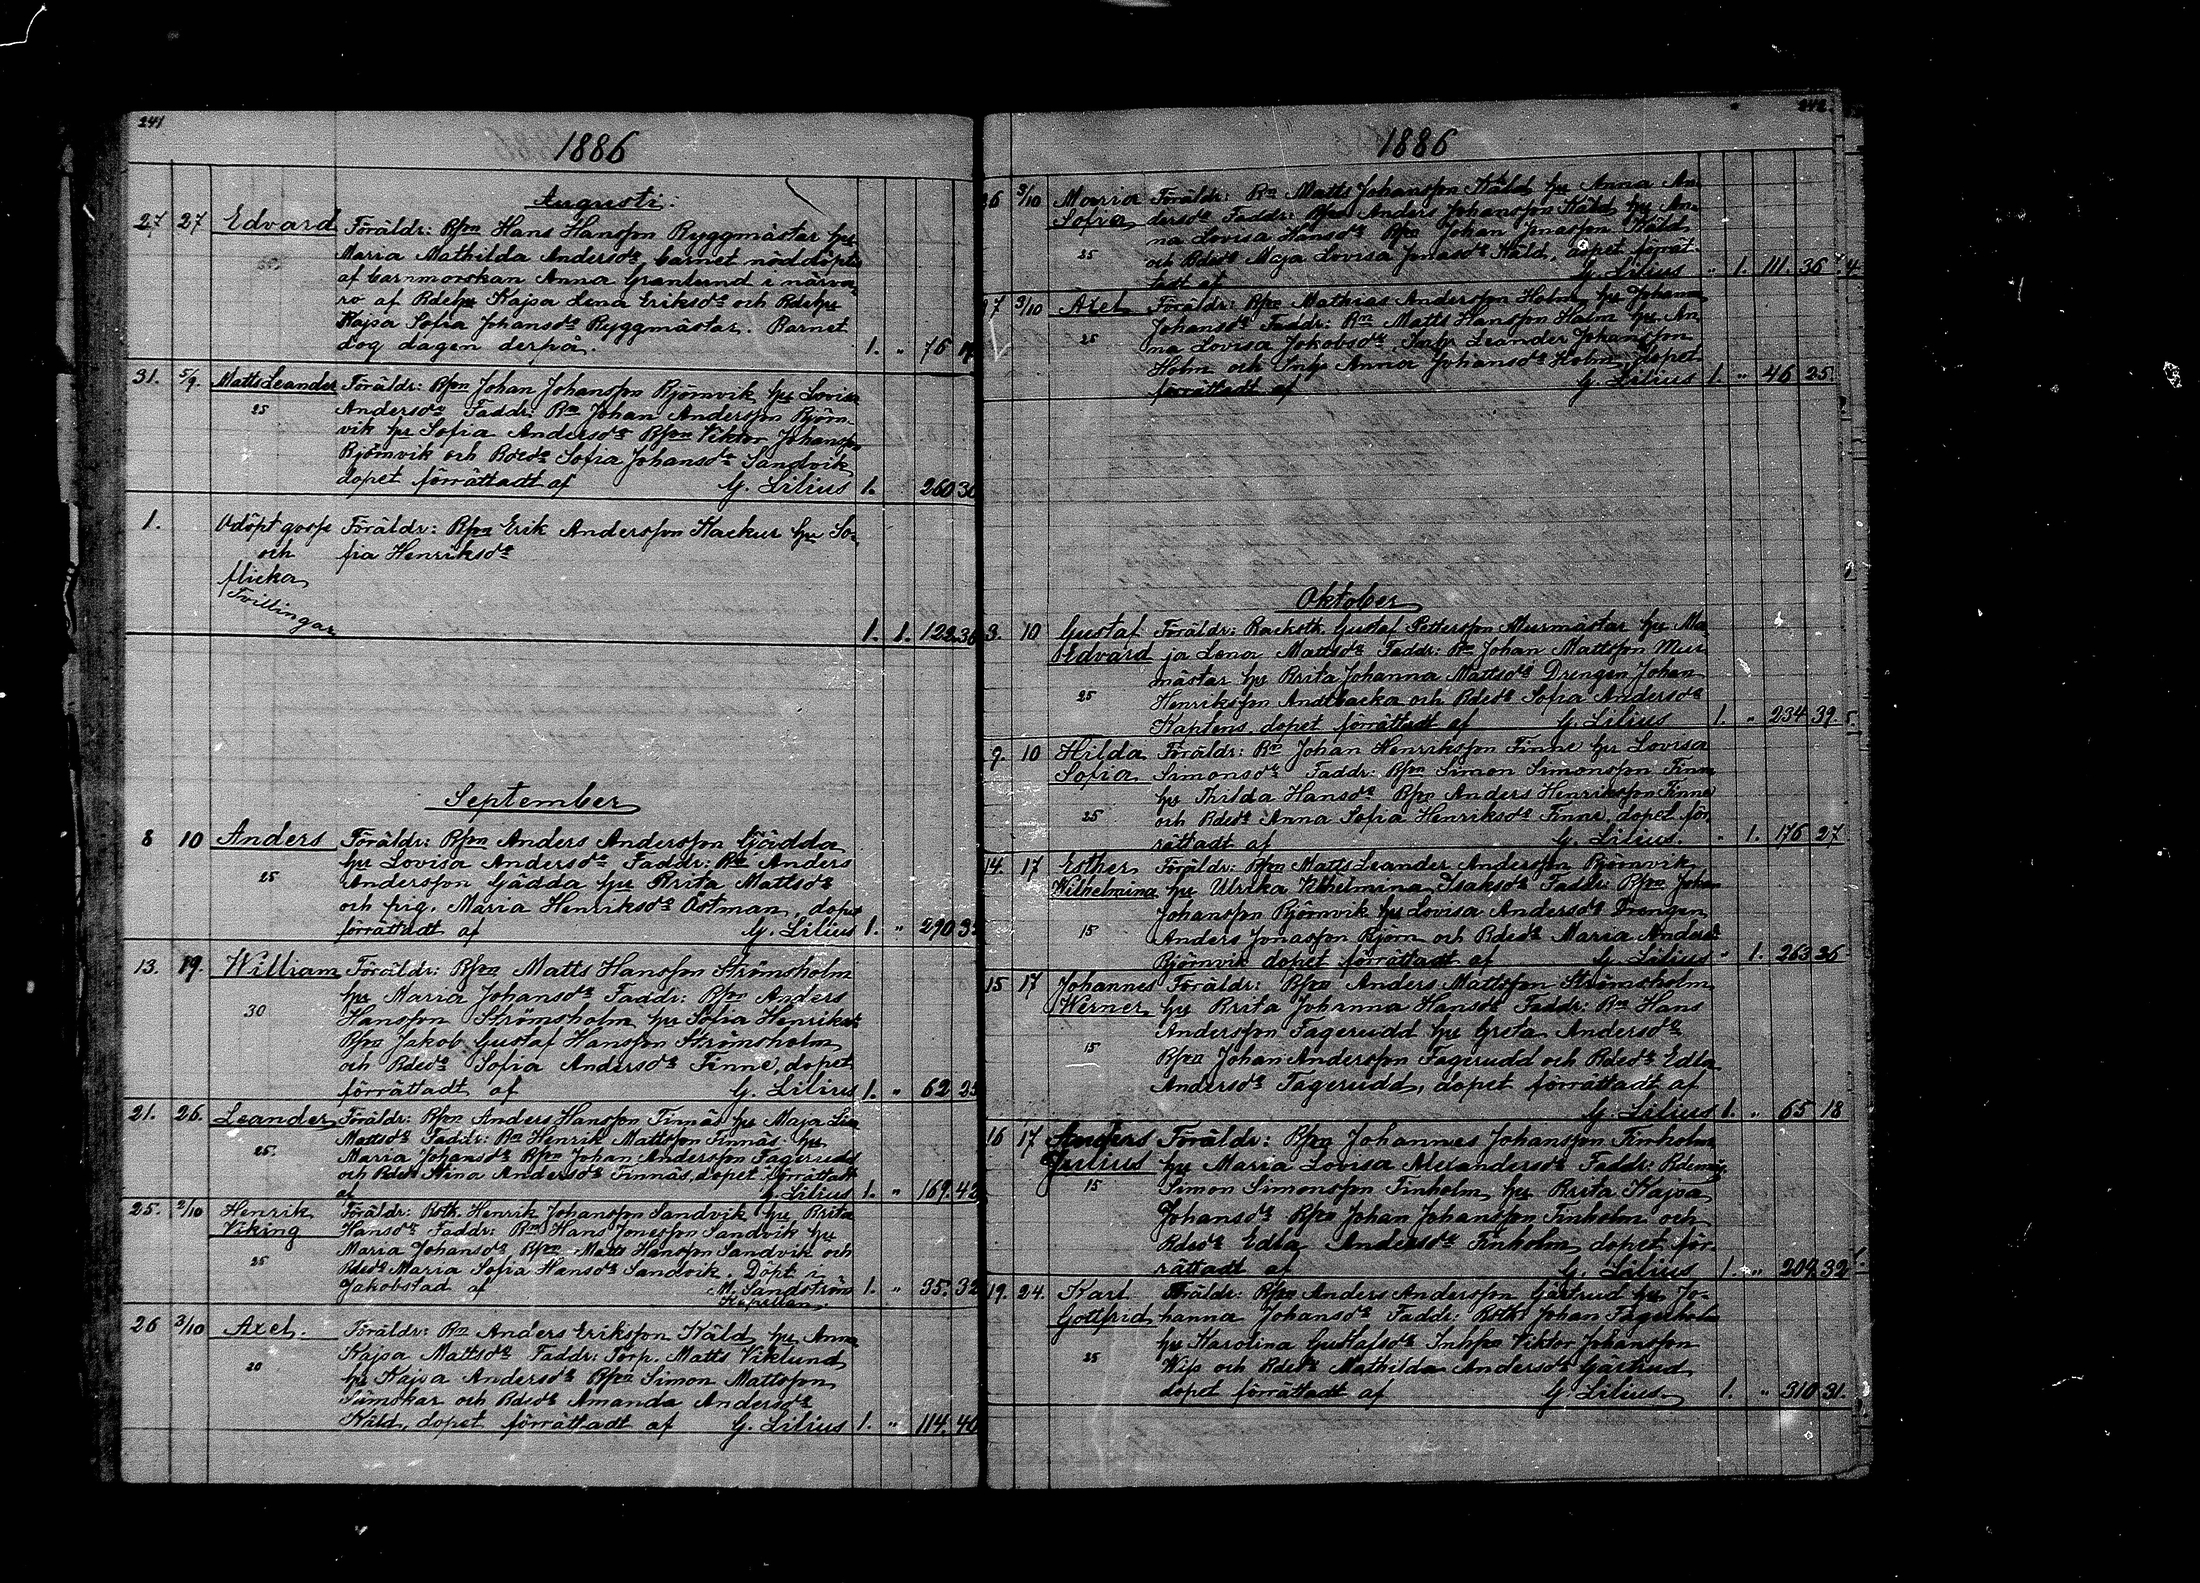 241
1886
Augusti.
27 27 Edvard Föräldr: Bpn Hans Hansson Byggmästar hu
Maria Mathilda Andersdr, barnet nöddöpts
af barnmorskan Anna Granlund i närva
ro af Bdehu Kajsa Lena Eriksdr och Bdehu
Kajsa Sofia Johansdr Byggmästar. Barnet
dog dagen derpå. 1. " 76
31. 5/9. Matts Leander Föräldr: Bpn Johan Johansson Björnvik hu Lovisa
25 Andersdr Faddr: Bn Johan Andersson Björn-
vik hu Sofia Andersdr Bpn Viktor Johansson
Björnvik och Bdedr Sofia Johansdr Sandvik,
dopet förrättadt af G. Lilius 1. 260 30
1. Odöpt gosse Föräldr: Bpn Erik Andersson Kackur hu So-
och fia Henriksdr
flicka
Tvillingar
1. 1. 123. 36
September
8 10 Anders Föräldr: Bpn Anders Andersson Gädda
hu Lovisa Andersdr Faddr: Bn Anders
25 Andersson Gädda hu Brita Mattsdr
och pig. Maria Henriksdr Östman, dopet
förrättadt af G. Lilius 1. " 290
13. 19. William Föräldr: Bpn Matts Hansson Strömsholm
hu Maria Johansdr Faddr: Bpn Anders
30 Hansson Strömsholm hu Sofia Henriksdr
Bpn Jakob Gustaf Hansson Strömsholm
och Bdedr Sofia Andersdr Finne, dopet
förrättadt af G. Lilius 1. " 62 23
21. 26. Leander Föräldr: Bpn Anders Hansson Finnäs hu Maja Lisa
Mattsdr Faddr: Bn Henrik Mattsson Finnäs hu
25. Maria Johansdr Bpn Johan Andersson Fagerudd
och Bdedr Stina Andersdr Finnäs, dopet förrättadt
af G. Lilius 1. " 169. 42
25. 2/10 Henrik Föräldr: Both. Henrik Johansson Sandvik hu Brita
Viking Hansdr Faddr: Bn Hans Jonasson Sandvik hu
Maria Johansdr, Bpn Matts Hansson Sandvik och
25 Bdedr Maria Sofia Hansdr Sandvik. Döpt i
Jakobstad af M. Sandström 1. " 35. 32
Kapellan.
26 3/10 Axel. Föräldr: Bn Anders Eriksson Käld hu Anna
Kajsa Mattsdr Faddr: Torp. Matts Viklund
20 hu Kajsa Andersdr Bpn Simon Mattsson
Sämskar och Bdedr Amanda Andersdr
Käld, dopet förrättadt af G. Lilius 1. " 114. 40
242.
1886
26 3/10 Maria Föräldr: Bn Matts Johansson Käld hu Anna An-
Sofia dersdr Faddr: Bpn Anders Johansson Käld hu An-
na Lovisa Hansdr Bpn Johan Jonasson Käld
25 och Bdedr Maja Lovisa Jonasdr Käld, dopet förrät-
tadt af G. Lilius " 1. 111. 36
7 3/10 Axel Föräldr: Bpn Mathias Andersson Holm hu Johanna
Johansdr Faddr: Bn Matts Hansson Holm hu An-
25 na Lovisa Jakobsdr, Inhp Leander Johansson
Holm och Inhp Anna Johansdr Holm, dopet
förrättadt af G. Lilius 1. " 46 25.
Oktober
3. 10 Gustaf Föräldr: Backstk. Gustaf Pettersson Murmästar hu Ma-
Edvard ja Lena Mattsdr Faddr: Bn Johan Mattsson Mur-
mästar hu Brita Johanna Mattsdr Drengen Johan
25 Henriksson Andtbacka och Bdedr Sofia Andersdr
Kaptens, dopet förrättadt af G. Lilius 1. " 234 39.
9. 10 Hilda Föräldr: Bn Johan Henriksson Finne hu Lovisa
Sofia Simonsdr Faddr: Bpn Simon Simonsson Finne
hu Thilda Hansdr Bpn Anders Henriksson Finne
25 och Bdedr Anna Sofia Henriksdr Finne, dopet för-
rättadt af G. Lilius. " 1. 176 27
14. 17 Esther Föräldr: Bpn Matts Leander Andersson Björnvik
Wilhelmina hu Ulrika Vilhelmina Isaksdr Faddr: Bpn Johan
Johansson Björnvik hu Lovisa Andersdr Drengen
15 Anders Jonasson Björn och Bdedr Maria Andersdr
Björnvik dopet förrättadt af G. Lilius " 1. 263 36
15 17 Johannes Föräldr: Bpn Anders Mattsson Strömsholm
Werner hu Brita Johanna Hansdr Faddr: Bn Hans
Andersson Fagerudd hu Greta Andersdr
15 Bpn Johan Andersson Fagerudd och Bdedr Edla
Andersdr Fagerudd, dopet förrättadt af
G. Lilius 1. " 65 18
16 17 Anders Föräldr: Bpn Johannes Johansson Finholm
Julius hu Maria Lovisa Alexandersdr Faddr: Bdemåg
15 Simon Simonsson Finholm hu Brita Kajsa
Johansdr Bpn Johan Johansson Finholm och
Bdedr Edla Andersdr Finholm, dopet för-
rättadt af G. Lilius 1. " 209. 32
19. 24. Karl Föräldr: Bpn Anders Andersson Gästrud hu Jo-
Gottfrid hanna Johansdr Faddr: Both. Johan Fagerholm
hu Karolina Gustafsdr Inhpn Viktor Johansson
25 Wiss och Bdedr Mathilda Andersdr Gästrud
dopet förrättadt af G. Lilius. 1. " 310 31.